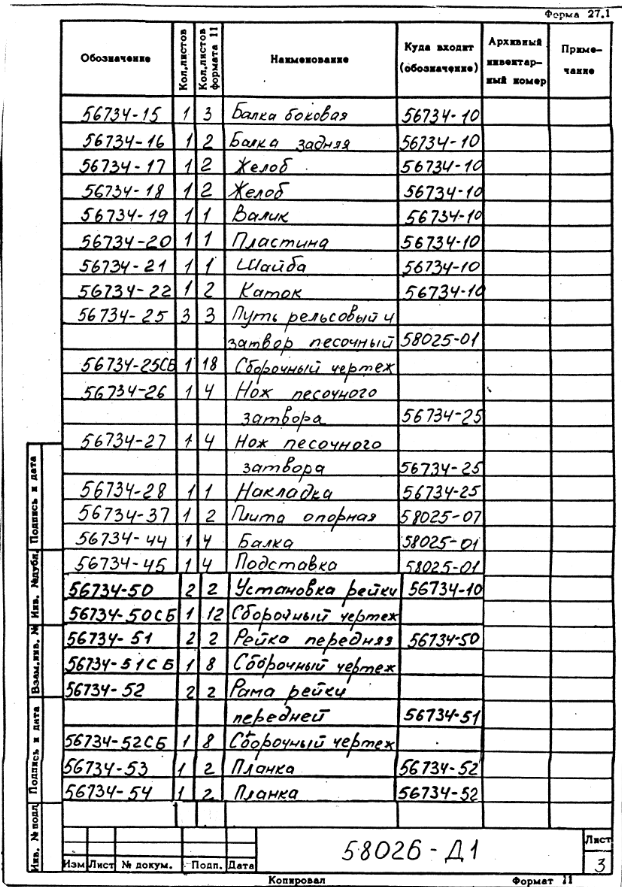 Форма 27.1
Обозначение Кол.листов Кол.листов формата 11 Наименование Куда входит (обозначение) Архивный инвентарный номер Примечание
56734-15 1 3 Балка боковая 56734-10
56734-16 1 2 Балка задняя 56734-10
56734-17 1 2 Желоб 56734-10
56734-18 1 2 Желоб 56734-10
56734-19 1 1 Валик 56734-10
56734-20 1 1 Пластина 56734-10
56734-21 1 1 Шайба 56734-10
56734-22 1 2 Каток 56734-10
56734-25 3 3 Путь рельсовый и
затвор песочный 58025-01
56734-25СБ 1 18 Сборочный чертеж
56734-26 1 4 Нож песочного
затвора 56734-25
56734-27 1 4 Нож песочного
затвора 56734-25
56734-28 1 1 Накладка 56734-25
56734-37 1 2 Плита опорная 58025-07
56734-44 1 4 Балка 58025-01
56734-45 1 4 Подставка 58025-01
56734-50 2 2 Установка рейки 56734-10
56734-50СБ 1 12 Сборочный чертеж
56734-51 2 2 Рейка передняя 56734-50
56734-51СБ 1 8 Сборочный чертеж
56734-52 2 2 Рама рейки
передней 56734-51
56734-52СБ 1 8 Сборочный чертеж
56734-53 1 2 Планка 56734-52
56734-54 1 2 Планка 56734-52
Инв. № подл. Подпись и дата Взам.инв. № Инв. № дубл. Подпись и дата
58026-Д1
Лист
3
Изм Лист № докум. Подп. Дата
Копировал Формат 11